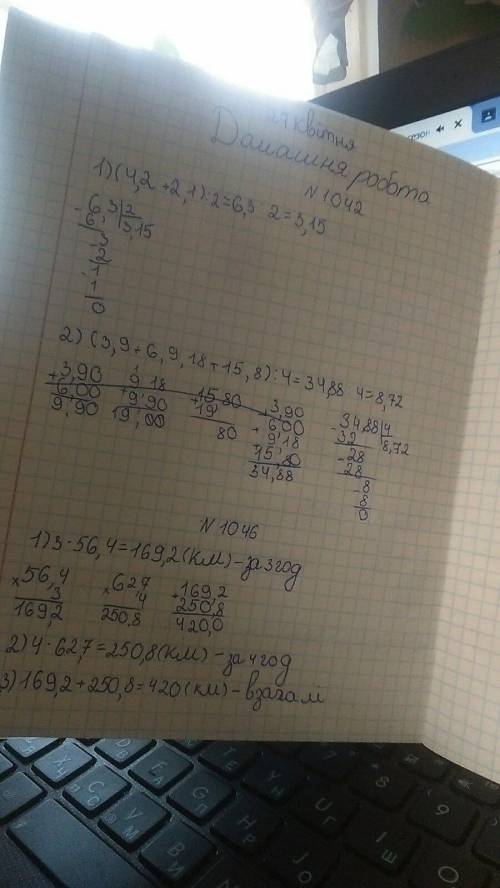 27 квітня
Домашня робота
N 1042
1) (4,2 + 2,1) : 2 = 6,3 : 2 = 3,15
- 6,3 | 2
6 3,15
- 3
2
- 1
1
0
2) (3,9 + 6, 9, 18 + 15, 8) : 4 = 34,88 4 = 8,72
+ 3,90
6,00
9,90
9,18
+ 9,90
19,00
+ 15,80
19
80
3,90
+ 6,00
9,18
15,80
34,88
- 34,88 | 4
32 8,72
- 28
28
- 8
8
0
N 1046
1) 3 · 56,4 = 169,2 (км) - за 3 год
× 56,4
3
169,2
× 62,7
4
250,8
+ 169,2
250,8
420,0
2) 4 · 62,7 = 250,8 (км) - за 4 год
3) 169,2 + 250,8 = 420 (км) - взагалі